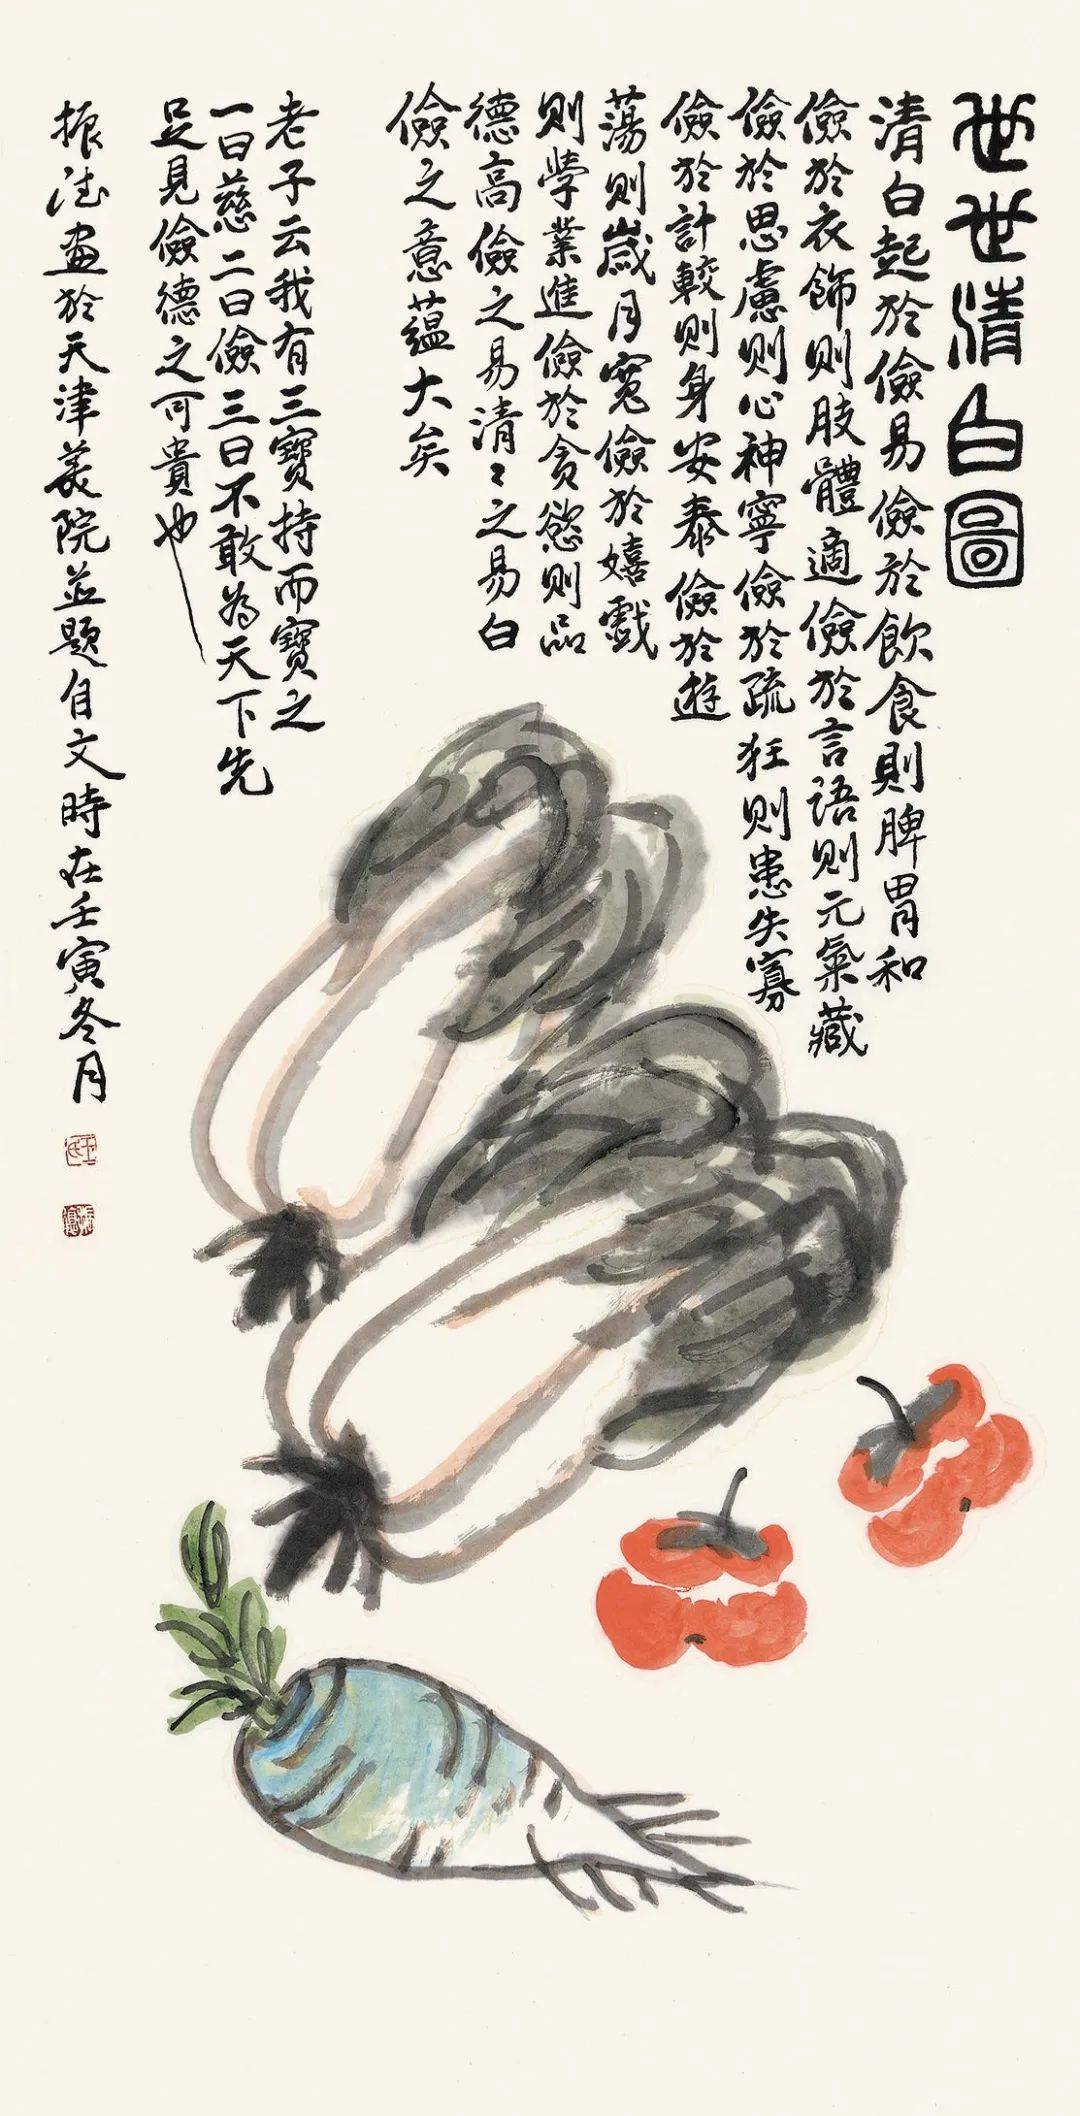 世世清白圖
清白起於儉易儉於飲食則脾胃和
儉於衣飾則肢體適儉於言語則元氣藏
儉於思慮則心神寧儉於疏狂則患失寡
儉於計較則身安泰儉於遊
蕩則歲月寬儉於嬉戲
則學業進儉於貪慾則品
德高儉之易清清之易白
儉之意蘊大矣
老子云我有三寶持而寶之
一曰慈二曰儉三曰不敢為天下先
足見儉德之可貴也
振德畫於天津美院並題自文時在壬寅冬月